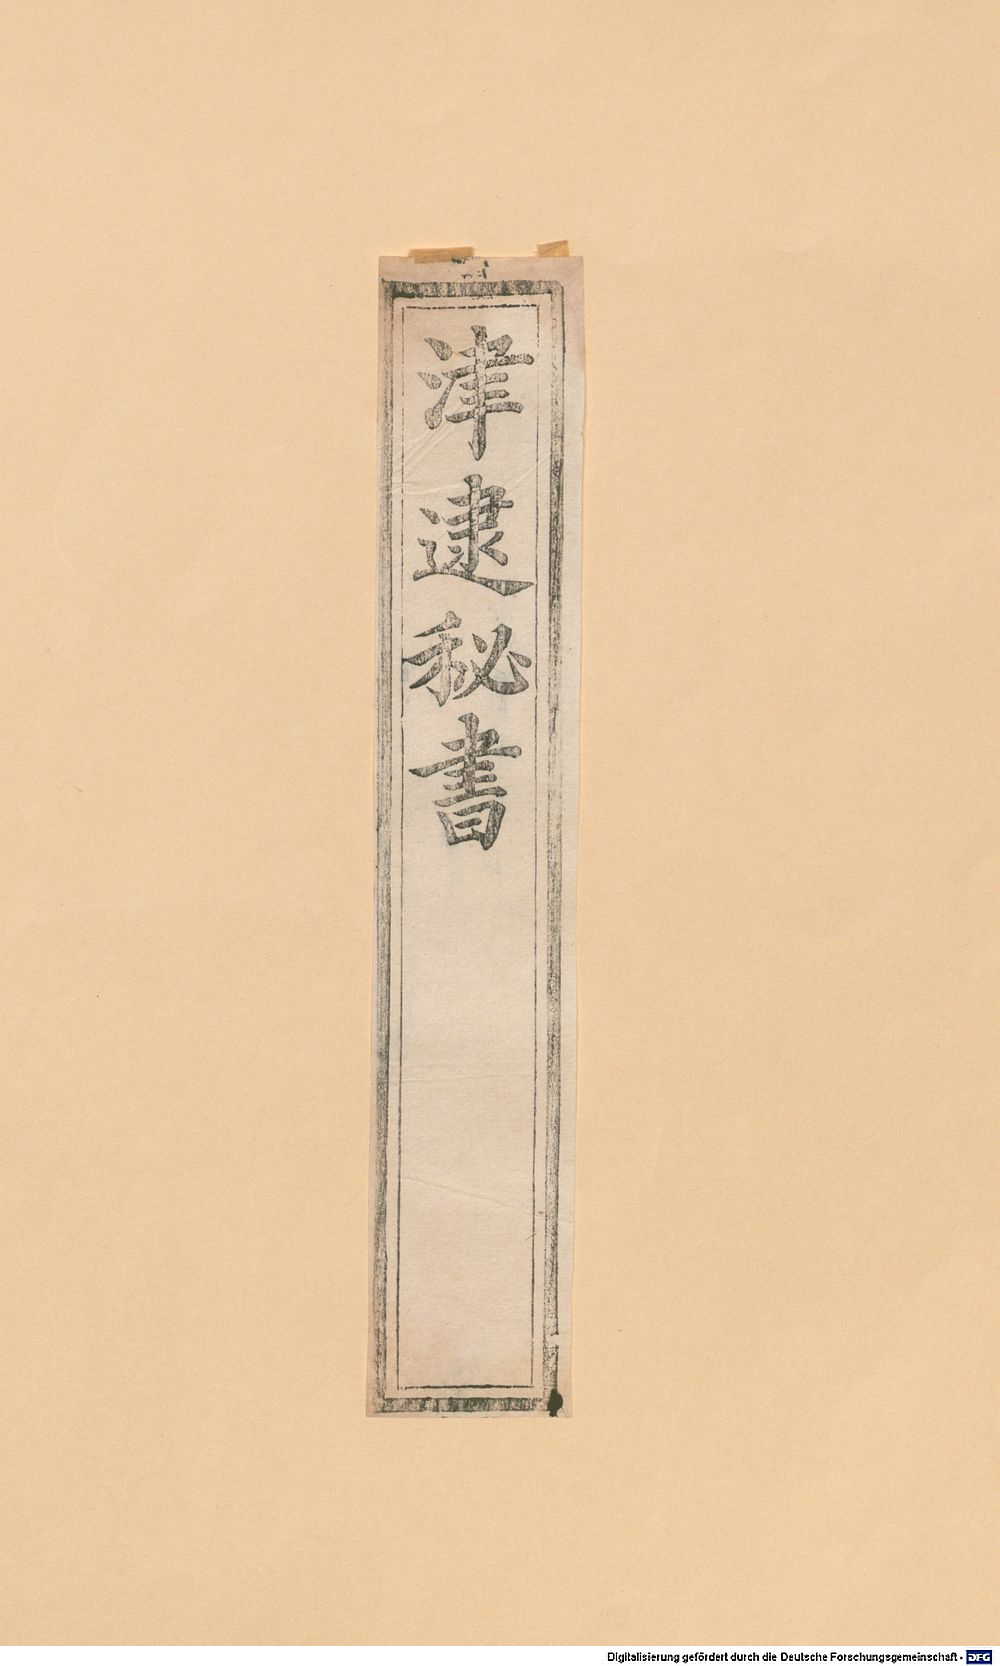 津逮秘書
Digitalisierung gefördert durch die Deutsche Forschungsgemeinschaft - DFG